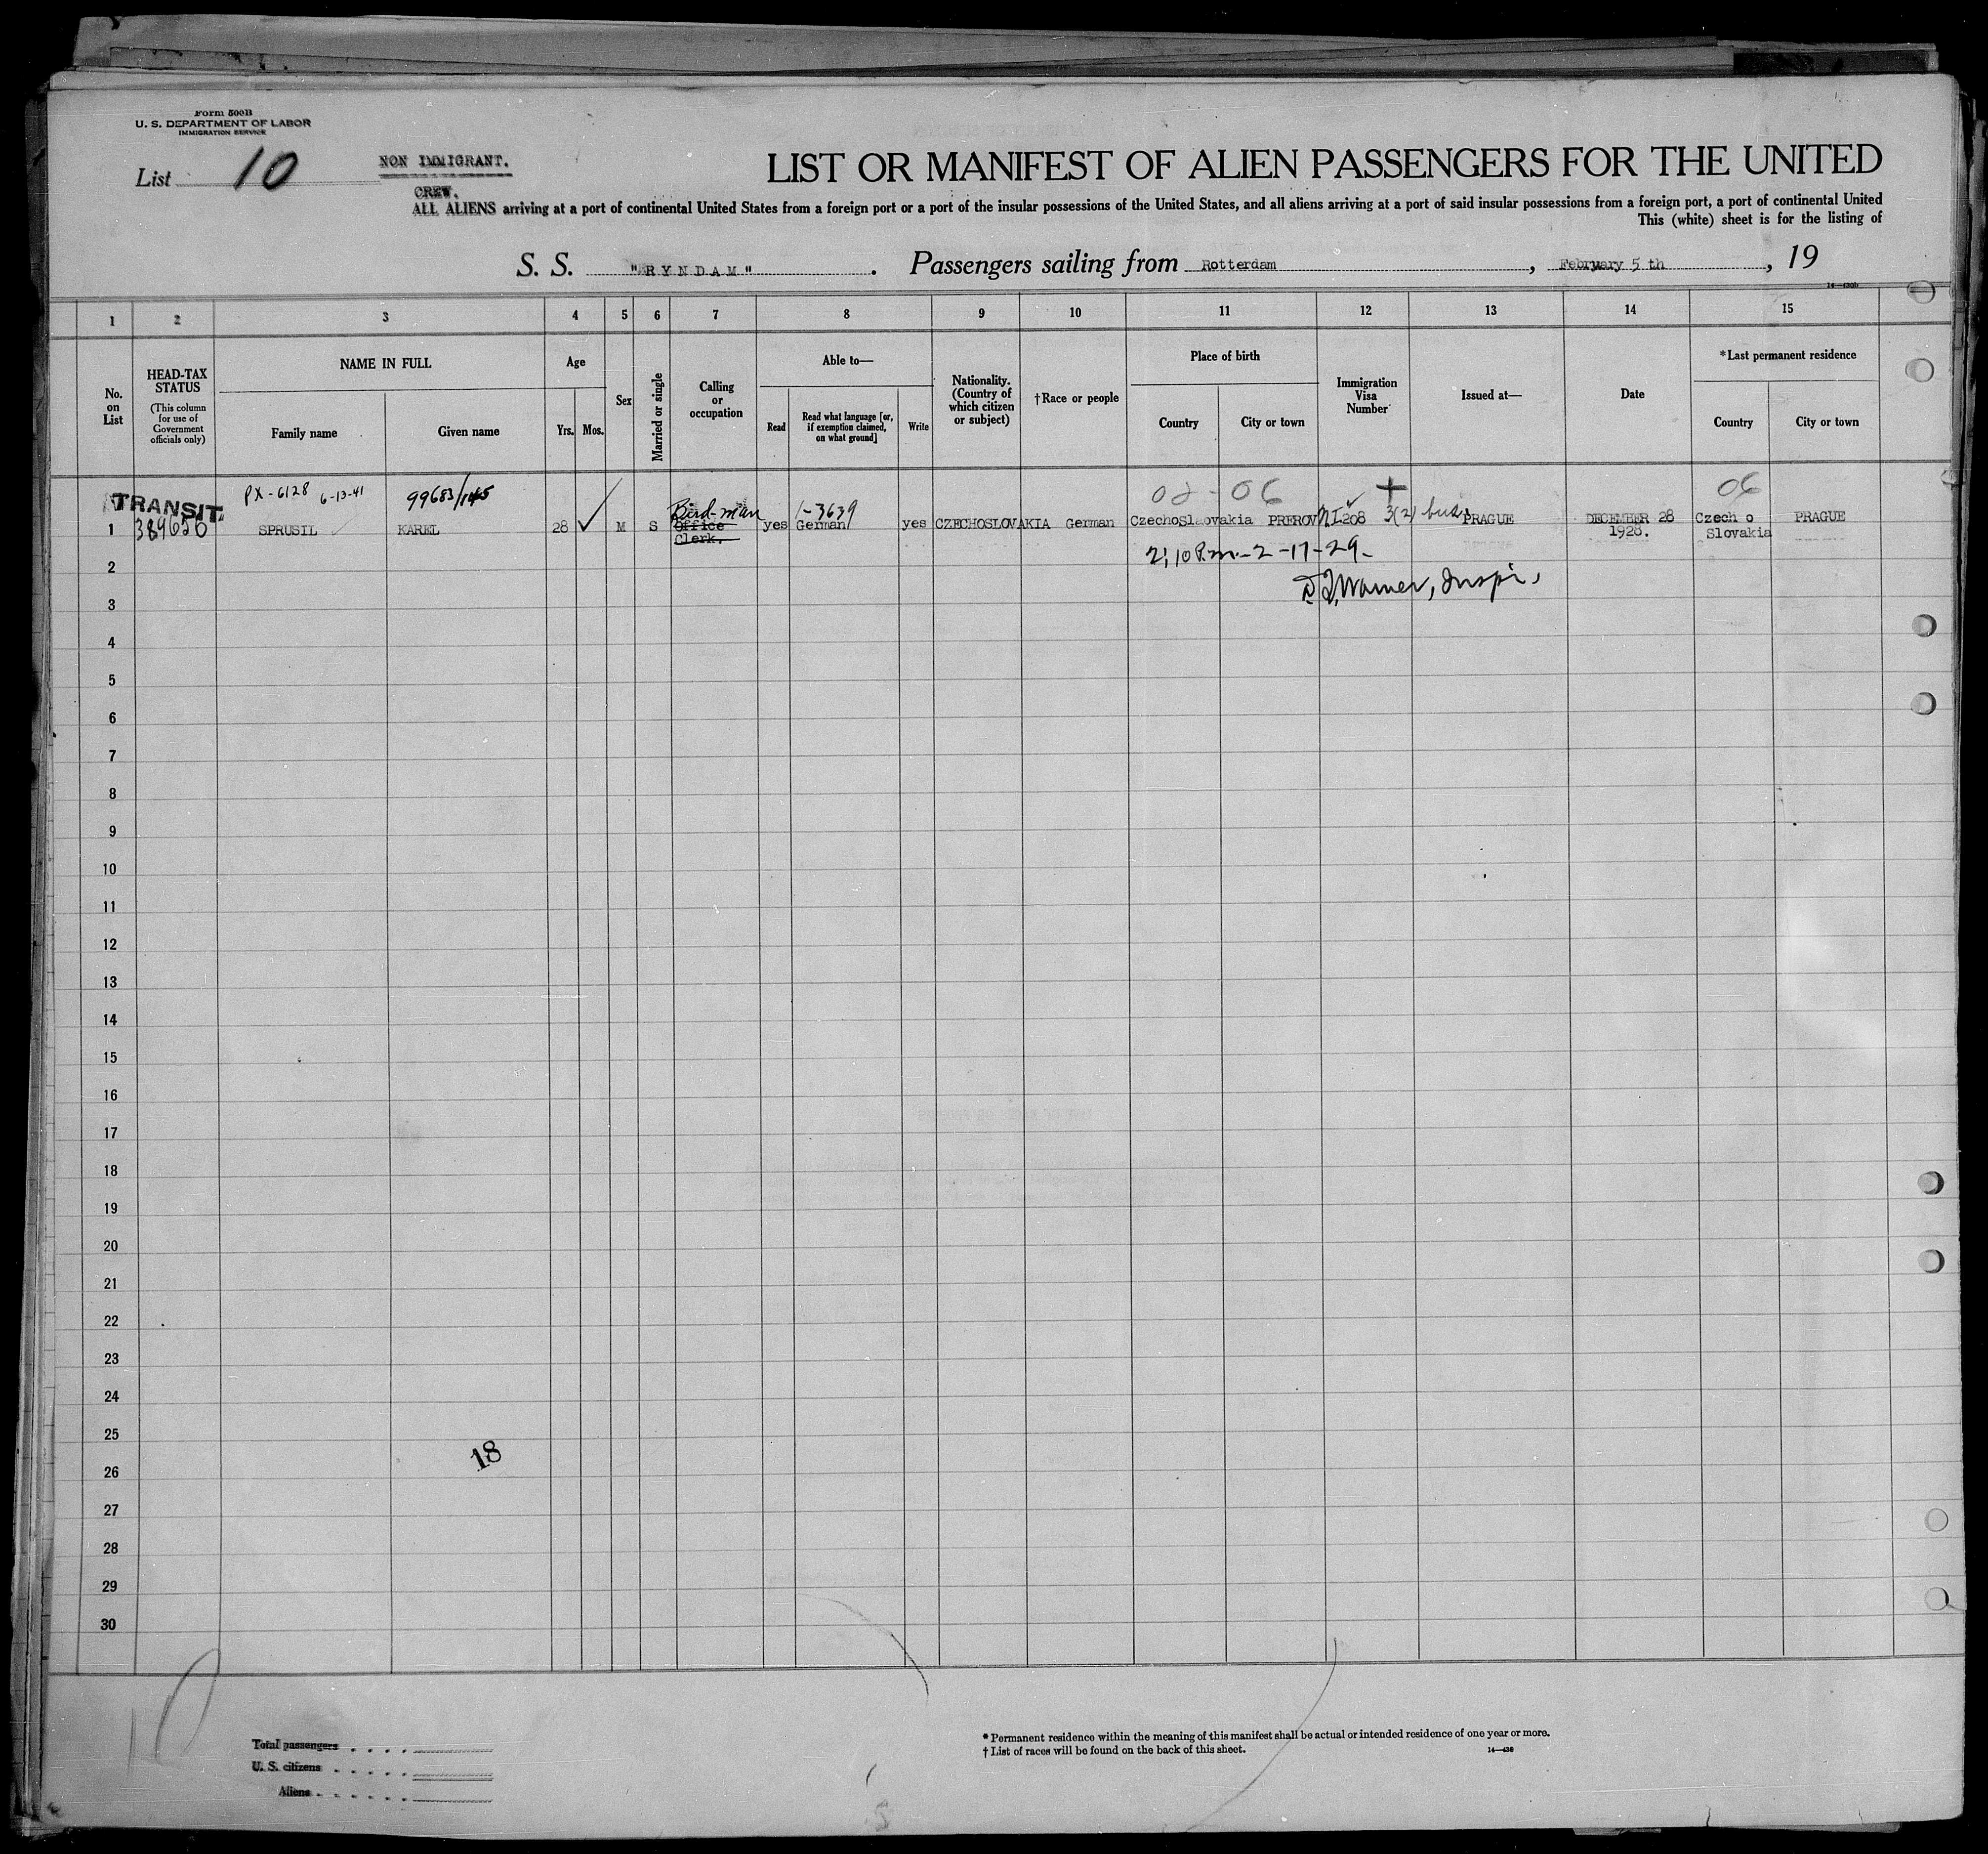 Form 500B
U. S. DEPARTMENT OF LABOR
IMMIGRATION SERVICE
List 10
NON IMMIGRANT.
CREW.
LIST OR MANIFEST OF ALIEN PASSENGERS FOR THE UNITED
ALL ALIENS arriving at a port of continental United States from a foreign port or a port of the insular possessions of the United States, and all aliens arriving at a port of said insular possessions from a foreign port, a port of continental United
This (white) sheet is for the listing of
S. S. "RYNDAM". Passengers sailing from Rotterdam, February 5 th, 19
1 2 3 4 5 6 7 8 9 10 11 12 13 14 15
No. on List
HEAD-TAX STATUS
(This column for use of Government officials only)
NAME IN FULL
Family name
Given name
Age
Yrs. Mos.
Sex
Married or single
Calling or occupation
Able to—
Read
Read what language [or, if exemption claimed, on what ground]
Write
Nationality. (Country of which citizen or subject)
†Race or people
Place of birth
Country
City or town
Immigration Visa Number
Issued at—
Date
*Last permanent residence
Country
City or town
PX-6128 6-13-41 99683/145 02-06 + 06
TRANSIT. Bird-man 1-3639
1 389626 SPRUSIL KAREL 28 ✓ M S Office Clerk. yes German yes CZECHOSLOVAKIA German CzechoSlaovakia PREROV NI208 3(2) PRAGUE DECEMBER 28 1928. Czech o Slovakia PRAGUE
2 2;10 P.m.-2-17-29-
3 Warner, Inspr.
4
5
6
7
8
9
10
11
12
13
14
15
16
17
18
19
20
21
22
23
24
25
18
26
27
28
29
30
10
Total passengers
U. S. citizens
Aliens
* Permanent residence within the meaning of this manifest shall be actual or intended residence of one year or more.
† List of races will be found on the back of this sheet.
14—438